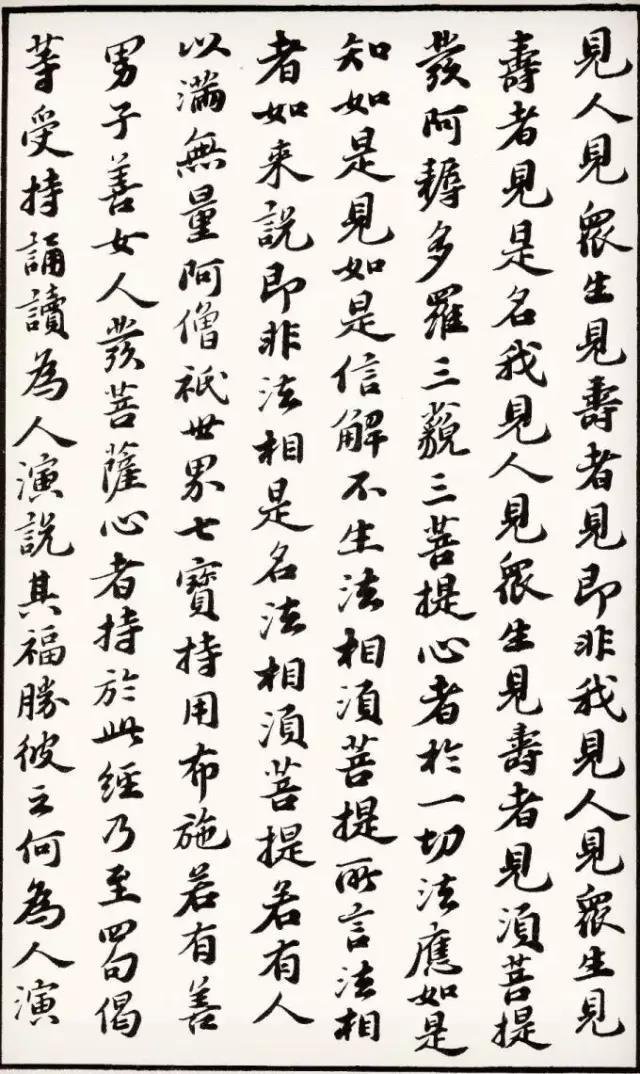 見人見眾生見壽者見即非我見人見眾生見
壽者見是名我見人見眾生見壽者見須菩提
發阿耨多羅三藐三菩提心者於一切法應如是
知如是見如是信解不生法相須菩提所言法相
者如来說即非法相是名法相須菩提若有人
以滿無量阿僧祇世界七寶持用布施若有善
男子善女人發菩薩心者持於此經乃至四句偈
等受持誦讀為人演說其福勝彼云何為人演